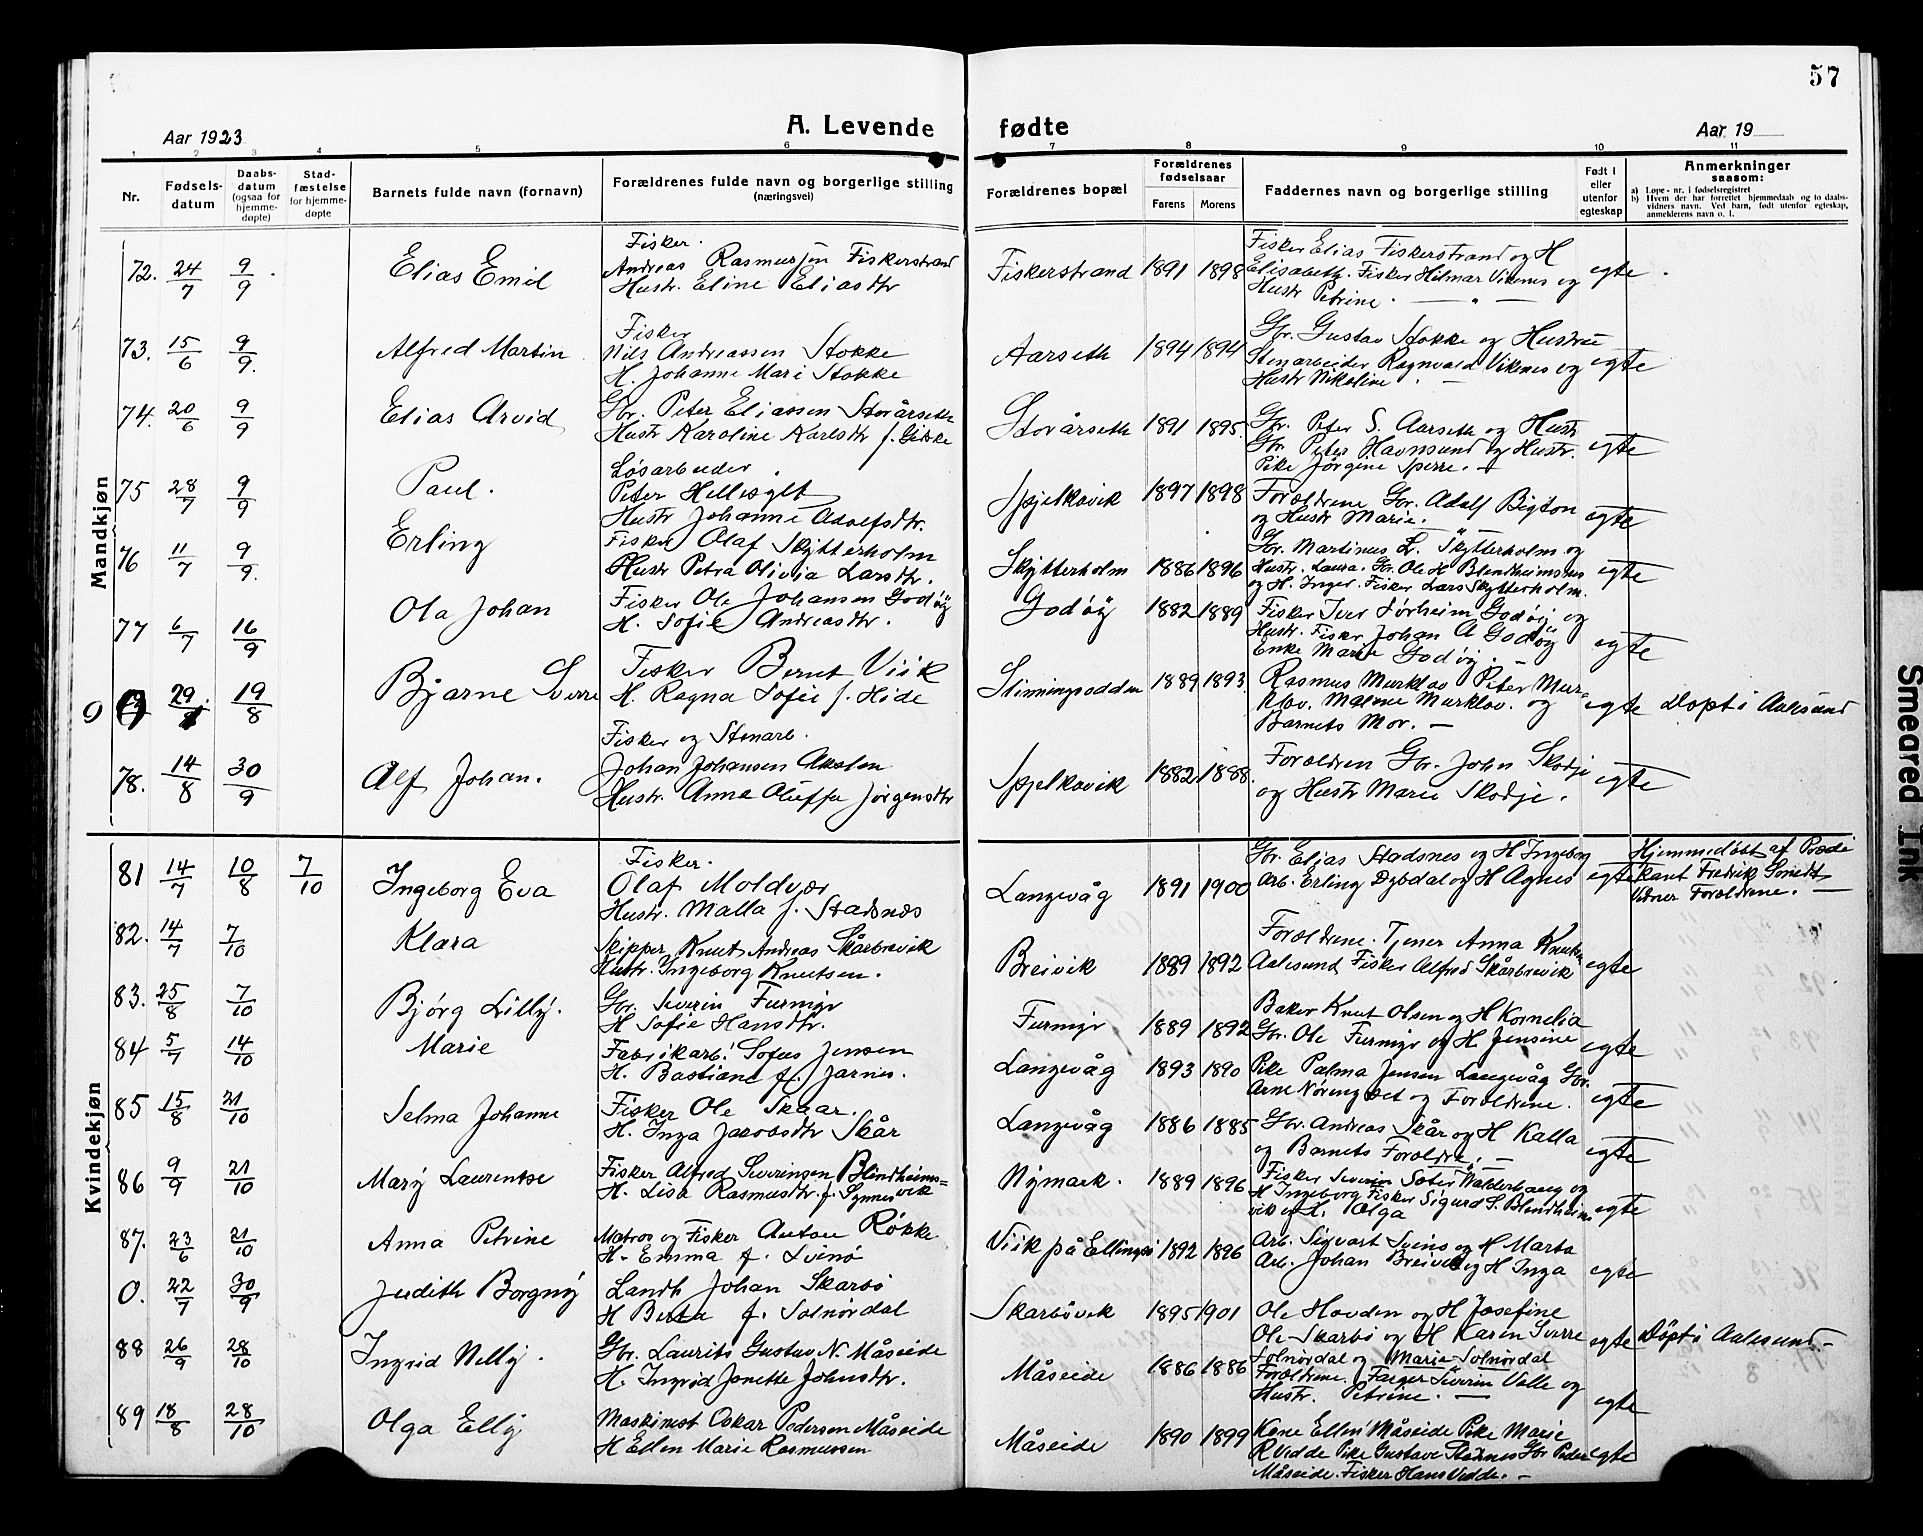 57
Aar 1923
A. Levende
fødte
Aar 19
1 2 3 4 5 6 7 8 9 10 11
Nr.
Fødsels-
datum
Daabs-
datum
(ogsaa for
hjemme-
døpte)
Stad-
fæstelse
for hjemme-
døpte
Barnets fulde navn (fornavn)
Forældrenes fulde navn og borgerlige stilling
(næringsvei)
Forældrenes bopæl
Forældrenes
fødselsaar
Farens Morens
Faddernes navn og borgerlige stilling
Født i
eller
utenfor
egteskap
Anmerkninger
saasom:
a) Løpe-nr. i fødselsregistret
b) Hvem der har forrettet hjemmedaab og to daabs-
vidners navn. Ved barn, født utenfor egteskap,
anmelderens navn o. l.
Mandkjøn
72. 24/7 9/9 Elias Emil
Fisker.
Andreas Rasmussen Fiskerstrand
Hustr. Eline Eliasdtr
Fiskerstrand 1891 1898
Fisker Elias Fiskerstrand og H
Elisabeth. Fisker Hilmar Vikenes og
Hustr Petrine. — " —
egte
73. 15/6 9/9. Alfred Martin
Fisker
Nils Andreassen Stokke
H. Johanne Mari Stokke
Aarseth 1894 1894
Gbr. Gustav Stokke og Hustru
Stenarbeider Ragnvald Vikenes og
Hustr Nikoline. —
egte
74. 20/6 9/9 Elias Arvid
Gbr. Peter Eliassen Storårseth
Hustr Karoline Karlsdtr f. Giske
Storårseth 1891 1895.
Gbr. Peter S. Aarseth og Hustr
Gbr. Peter Havnsund og Hustr.
Pike Jørgine Sperre. —
egte
75 28/7 9/9 Paul.
Løsarbeider.
Peter Hellesylt
Hustr Johanne Adolfsdtr.
Spjelkavik 1897 1898
Foreldrene Gbr. Adolf
og Hustr Marie. — " —
egte
76 11/7 9/9. Erling
Fisker Olaf Skytterholm
Hustr Petra Olivia Larsdtr.
Skytterholm 1886 1896
Gbr. Martinus L. Skytterholm og
Hustr. Laura. Gbr. Ole H Blindheimsnes
og H. Inger. Fisker Lars Skytterholm.
egte
77 6/7 16/9 Ola Johan
Fisker Ole Johansen Godøy
H. Sofie Andreasdtr.
Godøy 1882 1889
Fisker Iver Godøy og
Hustr. Fisker Johan A Godøy
Enke Marie Godøy. —
egte
0 29 19/8 Bjarne Sverre
Fisker Bernt Viik
H. Ragna Sofie f. Hide
1889 1893
Rasmus Murklov Peter Mur-
klov. Malene Murklov. og
Barnets Mor. —
egte Døpt i Aalesund
78. 14/8 30/9 Alf Johan.
Fisker og Stenarb.
Johan Johansen
Hustr. Anna Oluffa Jørgensdtr
Spjelkavik 1882 1888.
Foreldren Gbr. John Skodje
og Hustr Marie Skodje.
egte
Kvindekjøn
81 14/7 10/8 7/10 Ingeborg Eva
Fisker.
Olaf Moldvær
Hustr. Malla f. Stadsnes
Langevåg 1891 1900
Gbr. Elias Stadsnes og H Ingeborg
Arb. Erling Dybdal og H Agnes
egte
Hjemmedøbt af Prædi
kant Fredrik Smedt
Vidner Foreldrene. —
82. 14/7 7/10 Klara
Skipper Knut Andreas Skårbrevik
Hustr. Ingeborg Knutsen.
Breivik 1889 1892
Foreldrene. Tjener Anna Knutsen
Aalesund Fisker Alfred Skårbreivik
egte
83. 25/8 7/10 Bjørg Lilly.
Gbr. Severin Furmyr
H Sofie Hansdtr.
Furmyr 1889 1892
Baker Knut Olsen og H Kornelia
Gbr. Ole Furmyr og H. Jensine
egte
84 5/7 14/10 Marie
Fabrikarb. Sofus Jensen
H. Bastiane f. Jarnes.
Langevåg 1893 1890
Pike Palma Jensen Langevåg Gbr.
Arne og Foreldrene.
egte
85 15/8 21/10 Selma Johanne
Fisker Ole Skaar.
H. Inga Jacobsdtr Skår
Langevåg 1886 1885
Gbr. Andreas Skår og H Kalla
og Barnets Foreldre. —
egte
86 9/9 21/10 Mary Laurentse
Fisker Alfred Severinsen Blindheims=
vik
H. Lisa Rasmusdtr. f. Synnes
Nymark. 1889 1896
Fisker Severin Sæter Valderhaug og
H Ingeborg Fisker Sigurd S. Blindheims
vik og H. Olga
egte
87. 23/6 21/10 Anna Petrine
Matros og Fisker Anton Røkke
H. Emma f. Svinø
Viik på Ellingsø 1892 1896
Arb. Sigvart Svinø og H Marta
Arb. Johan Breivik og H Inga
egte
0. 22/7 30/9 Judith Borgny
Landh Johan Skarbø
H Berta f. Solnørdal
Skarbøvik 1895 1901
Ole Hovden og H Josefine
Ole Skarbø og H Karen Sverre
Solnørdal og Marie Solnørdal
egte Døpt i Aalesund —
88 26/9 28/10 Ingrid Nelly.
Gbr. Laurits Gustav N. Måseide
H. Ingrid Janette Johnsdtr.
Måseide 1886 1886
Foreldrene. Farger Severin Valle og
Hustr. Petrine. —
egte
89 18/8 28/10 Olga Elly
Maskinist Oskar Pedersen Måseide
H Ellen Marie Rasmussen
Måseide 1890 1899
Kone Ellen Måseide Pike Marie
R Vedde Pike Gustava Gbr Peder
Måseide. Fisker Hans Vedde. —
egte
Smeared Ink